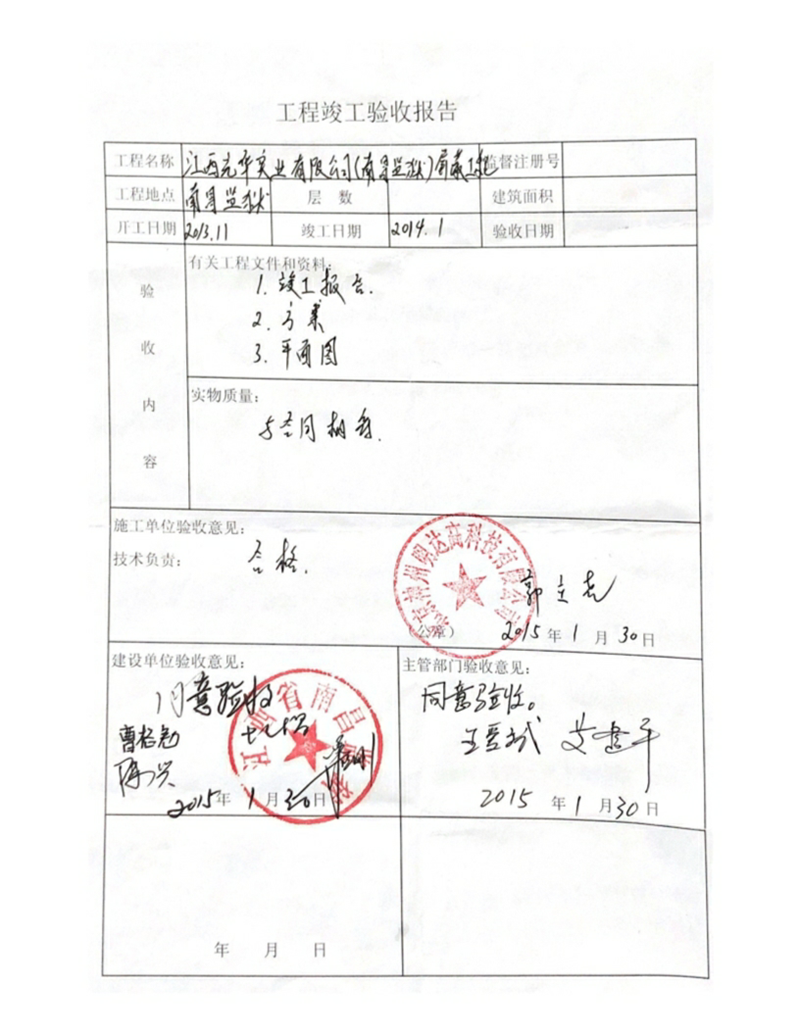 工程竣工验收报告
工程名称 江西光华实业有限公司(南昌监狱)屏蔽工程 监督注册号
工程地点 南昌监狱 层 数 建筑面积
开工日期 2013.11 竣工日期 2014.1 验收日期
验收内容
有关工程文件和资料:
1. 竣工报告.
2. 方案
3. 平面图
实物质量:
与合同相符.
施工单位验收意见:
技术负责: 合格.
(公章)
2015年1月30日
建设单位验收意见:
同意验收
江西省南昌监狱
2015年1月30日
主管部门验收意见:
同意验收。
2015年1月30日
年 月 日